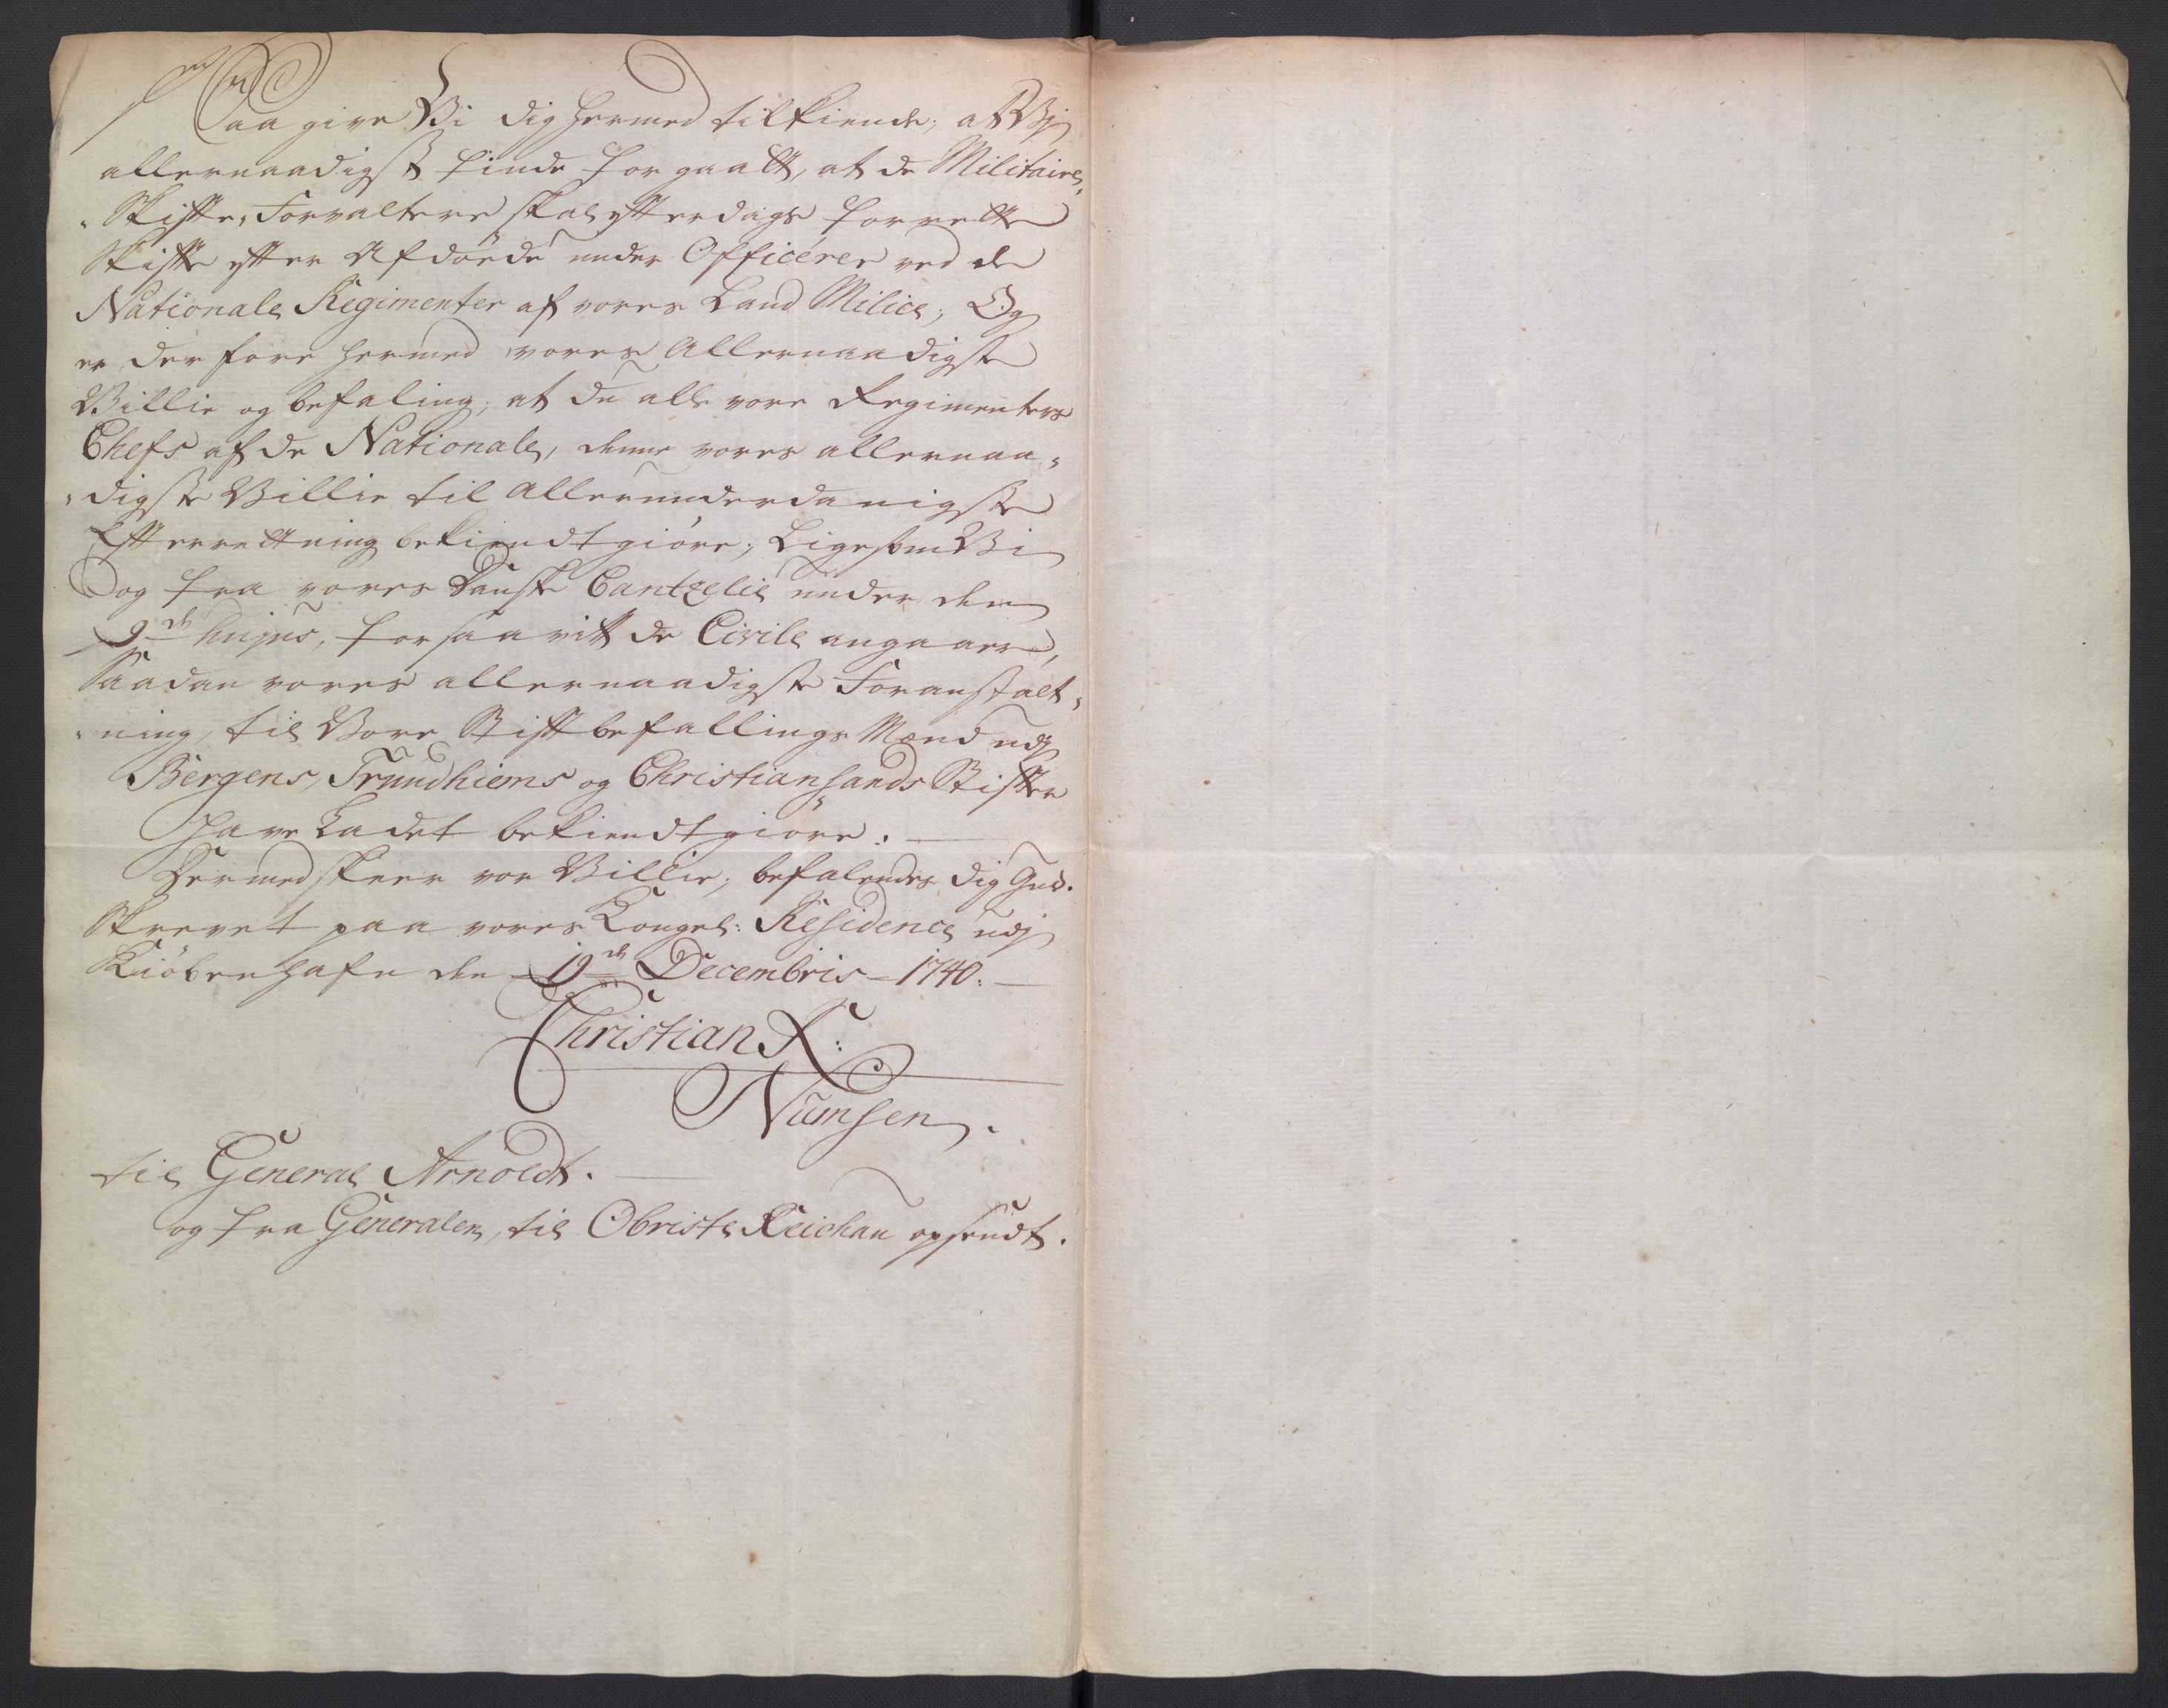 Saa give Vi dig hermed tilkiende, at Vj
allernaadigst finde for gaatt, at de Militaire
Skifte-Forvaltere skal effterdags forrette
Skiffte effter Afdöede under Officérer ved de
Nationale Regimenter af vores Land Milice; Og
er derfore hermed vores Allernaadigste
Villie og befaling, at du alle vore Regimenters
Chefs af de Nationale, denne vores allernaa-
digste Villie til allerunderdanigste
Effterrettning bekiendtgiöre; Ligesom Vi
og fra vores Danske Cantzelie under den
9de hujus, forsaavitt de Civile angaaer,
Saadan vores allernaadigste Foranstalt-
ning, til Vore Stifftbefallings Mænd udj
Bergens, Trundhiems og Christiansands Stiffter
have Ladet bekiendtgiöre.
Hermed skeer vor Villie, befalendes dig Gud.
Skrevet paa vores Kongel: Residence udj
Kiöbenhafn den 19de Decembris 1740.
Christian R:
Numsen.
til General Arnoldt.
og fra Generalen, til Obriste Reichau opsendt.